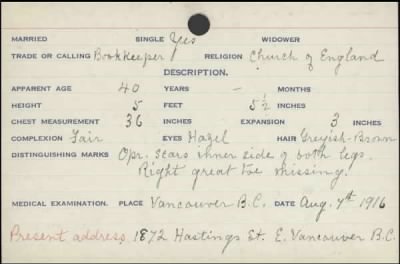 MARRIED SINGLE Yes WIDOWER
TRADE OR CALLING Bookkeeper RELIGION Church of England
DESCRIPTION.
APPARENT AGE 40 YEARS - MONTHS
HEIGHT 5 FEET 5½ INCHES
CHEST MEASUREMENT 36 INCHES EXPANSION 3 INCHES
COMPLEXION Fair EYES Hazel HAIR Greyish-Brown
DISTINGUISHING MARKS Opr. scars inner side of both legs.
Right great toe missing.
MEDICAL EXAMINATION. PLACE Vancouver B.C. DATE Aug. 7th 1916
Present address 1872 Hastings St. E. Vancouver B.C.